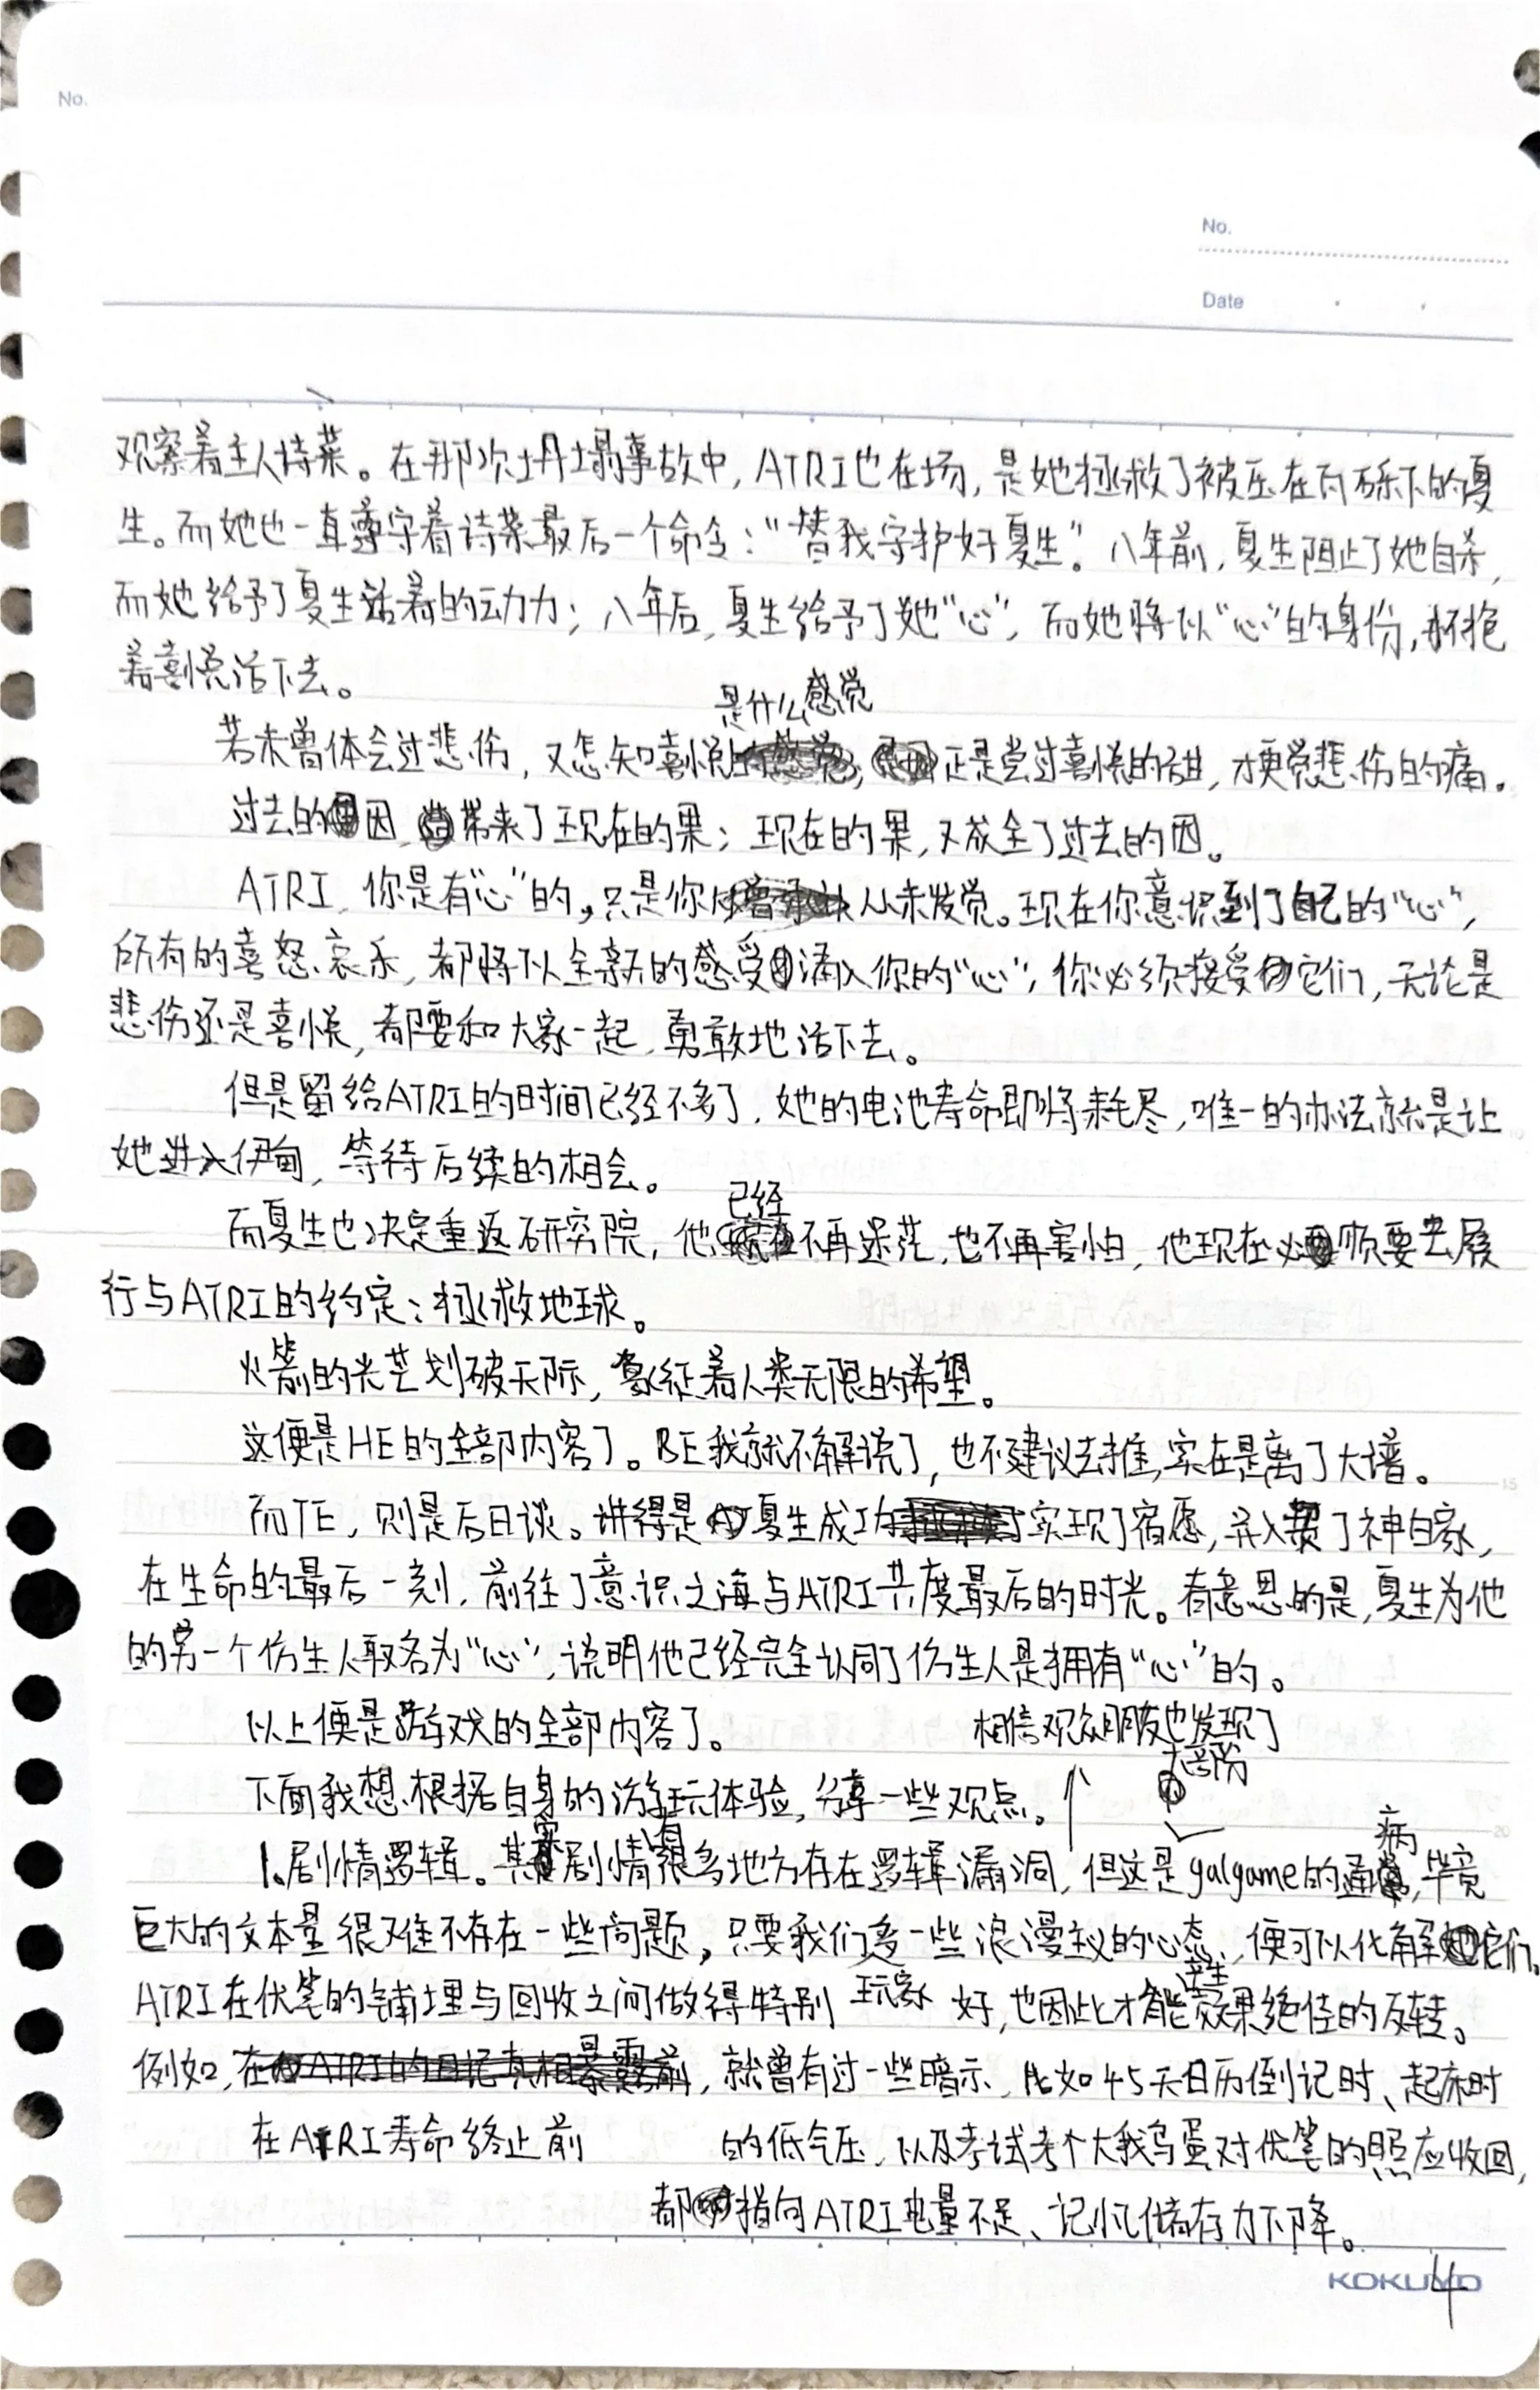 No.
No.
Date
观察着主人诗菜。在那次坍塌事故中，ATRI也在场，是她拯救了被压在瓦砾下的夏
生。而她也一直遵守着诗菜最后一个命令：“替我守护好夏生”。八年前，夏生阻止了她自杀，
而她给予了夏生活着的动力；八年后，夏生给予了她“心”，而她将以“心”的身份，怀抱
着喜悦活下去。
是什么感觉
若未曾体会过悲伤，又怎知喜悦，正是尝过喜悦的甜，才更觉悲伤的痛。
过去的因，带来了现在的果；现在的果，又成全了过去的因。
ATRI，你是有“心”的，只是你从未发觉。现在你意识到了自己的“心”，
所有的喜怒哀乐，都将以全新的感受涌入你的“心”，你必须接受它们，无论是
悲伤还是喜悦，都要和大家一起，勇敢地活下去。
但是留给ATRI的时间已经不多了，她的电池寿命即将耗尽，唯一的办法就是让
她进入伊甸，等待后续的相会。
已经
而夏生也决定重返研究院，他不再迷茫，也不再害怕，他现在必须要去履
行与ATRI的约定：拯救地球。
火箭的光芒划破天际，象征着人类无限的希望。
这便是HE的全部内容了。BE我就不解说了，也不建议去推，实在是离了大谱。
而TE，则是后日谈。讲得是夏生成功实现了宿愿，并入赘了神白家，
在生命的最后一刻，前往了意识之海与ATRI共度最后的时光。有意思的是，夏生为他
的另一个仿生人取名为“心”，说明他已经完全认同了仿生人是拥有“心”的。
以上便是游戏的全部内容了。 相信观众朋友也发现了
大部份
下面我想根据自身的游玩体验，分享一些观点。
实 有 病
1.剧情逻辑。其剧情很多地方存在逻辑漏洞，但这是galgame的通，毕竟
巨大的文本量很难不存在一些问题，只要我们多一些浪漫主义的心态，便可以化解它们。
产生
ATRI在伏笔的铺埋与回收之间做得特别 玩家 好，也因此才能效果绝佳的反转。
例如，在ATRI的日记真相暴露前，就曾有过一些暗示，比如45天日历倒记时、起床时
在ATRI寿命终止前 的低气压，以及考试考个大鹅鸟蛋对伏笔的照应收回，
都指向ATRI电量不足、记忆储存力下降。
KOKUYO
4